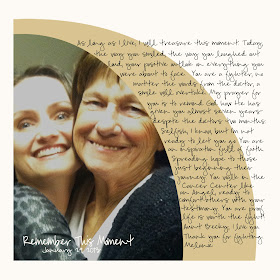 As long as I live, I will treasure this moment. Today,
the way you smiled, the way you laughed out
loud, your positive outlook on everything you
were about to face. You are a fighter, no
matter the words from the doctor, a
smile will overtake. My prayer for
you is to never God now He has
given you almost seven years
despite the doctors two months
Selfish, I know, but I'm not
ready to let you go. You are
an inspiration full of faith
Spreading hope to those
just beginning their
You walk in the
Cancer Center like
an Angel, ready to
comfort others with your
testimony. You are proof
life is worth the fight
Aunt Becky, I love you
Thank you for fighting
Melanie
Remember This Moment
January 29, 2015